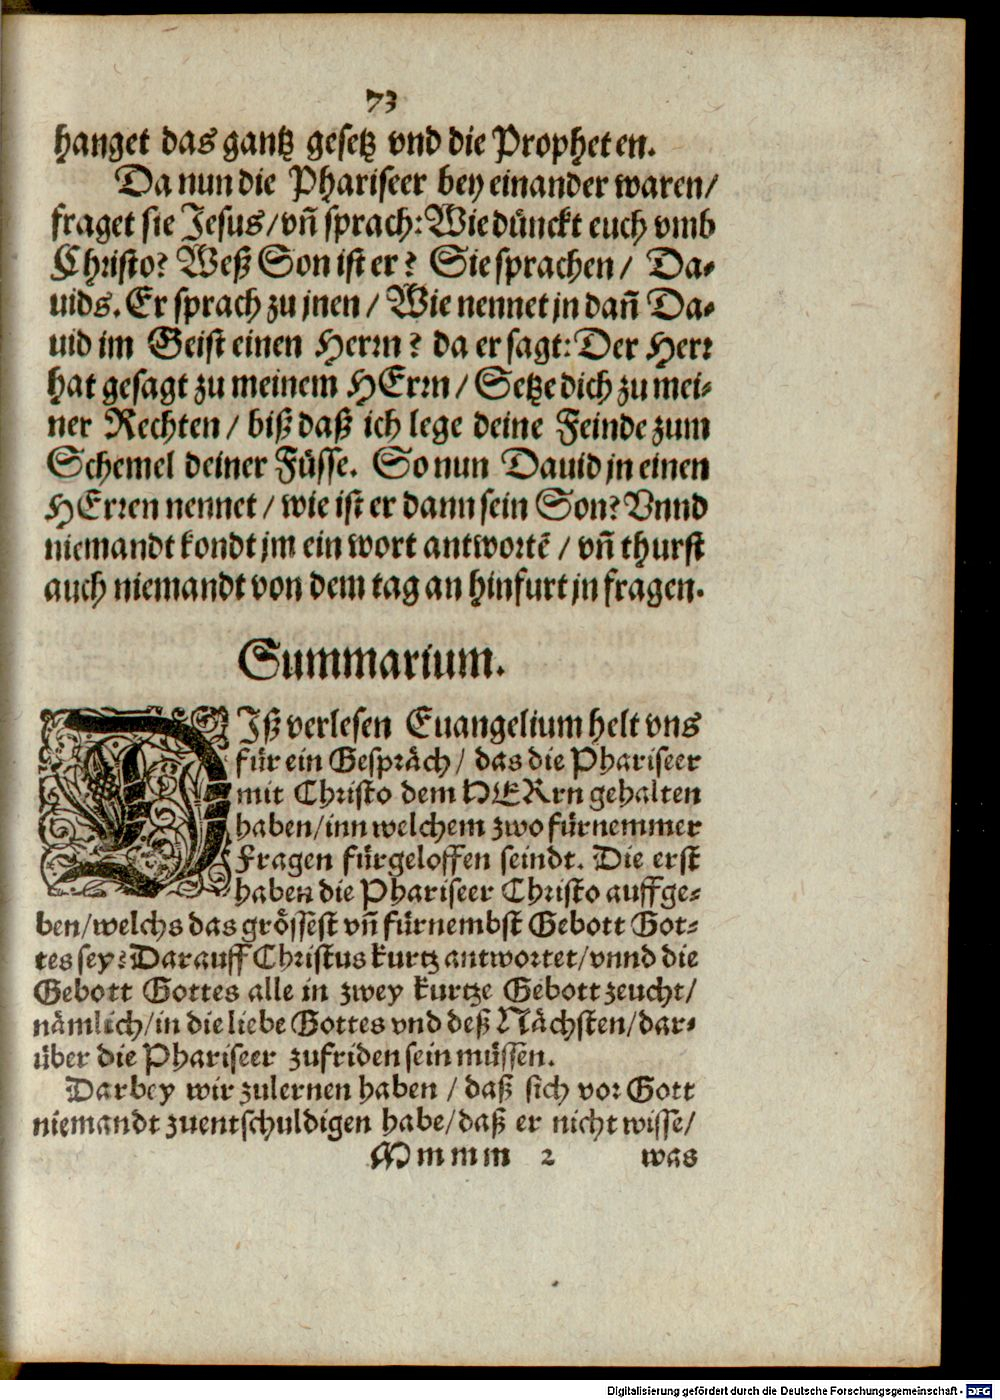 73
hanget das gantz gesetz vnd die Propheten.
Da nun die Phariseer bey einander waren/
fraget sie Jesus/vñ sprach: Wie dünckt euch vmb
Christo? Weß Son ist er? Sie sprachen/ Da-
uids. Er sprach zu jnen/ Wie nennet jn dañ Da-
uid im Geist einen Herrn? da er sagt: Der Herr
hat gesagt zu meinem HErrn/ Setze dich zu mei-
ner Rechten/ biß daß ich lege deine Feinde zum
Schemel deiner Füsse. So nun Dauid jn einen
HErren nennet/ wie ist er dann sein Son? Vnnd
niemandt kondt jm ein wort antwortẽ/ vñ thurst
auch niemandt von dem tag an hinfurt jn fragen.
Summarium.
DIß verlesen Euangelium helt vns
für ein Gespräch/ das die Phariseer
mit Christo dem HERrn gehalten
haben/inn welchem zwo fürnemmer
Fragen fürgeloffen seindt. Die erst
haben die Phariseer Christo auffge-
ben/welchs das grössest vñ fürnembst Gebott Got-
tes sey? Darauff Christus kurtz antwortet/vnnd die
Gebott Gottes alle in zwey kurtze Gebott zeucht/
nämlich/in die liebe Gottes vnd deß Nächsten/dar-
über die Phariseer zufriden sein müssen.
Darbey wir zulernen haben/ daß sich vor Gott
niemandt zuentschuldigen habe/daß er nicht wisse/
Mmmm 2 was
Digitalisierung gefördert durch die Deutsche Forschungsgemeinschaft - DFG